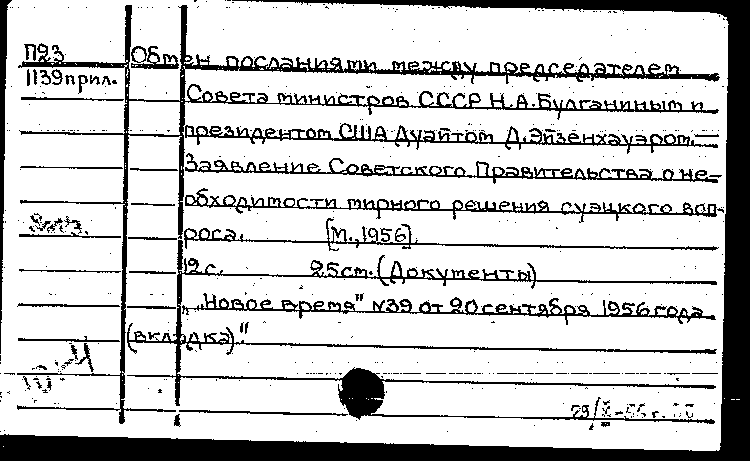 П23 Обмен посланиями между председателем
1139прил.
Совета министров СССР Н.А.Булганиным и
президентом США Дуайтом Д.Эйзенхауэром.—
Заявление Советского Правительства о не-
обходимости мирного решения суэцкого воп-
роса. [М.,1956].
12 с. 25см. (Документы)
„Новое время" №39 от 20 сентября 1956 года
(вкладка)."